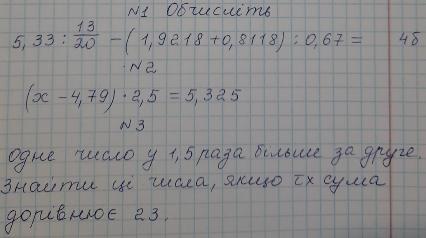 №1 Обчисліть
5,33 : 13/20 - ( 1,9218 + 0,8118) : 0,67 = 4б
№2
(x - 4,79) · 2,5 = 5,325
№3
Одне число у 1,5 раза більше за друге.
Знайти ці числа, якщо їх сума
дорівнює 23.